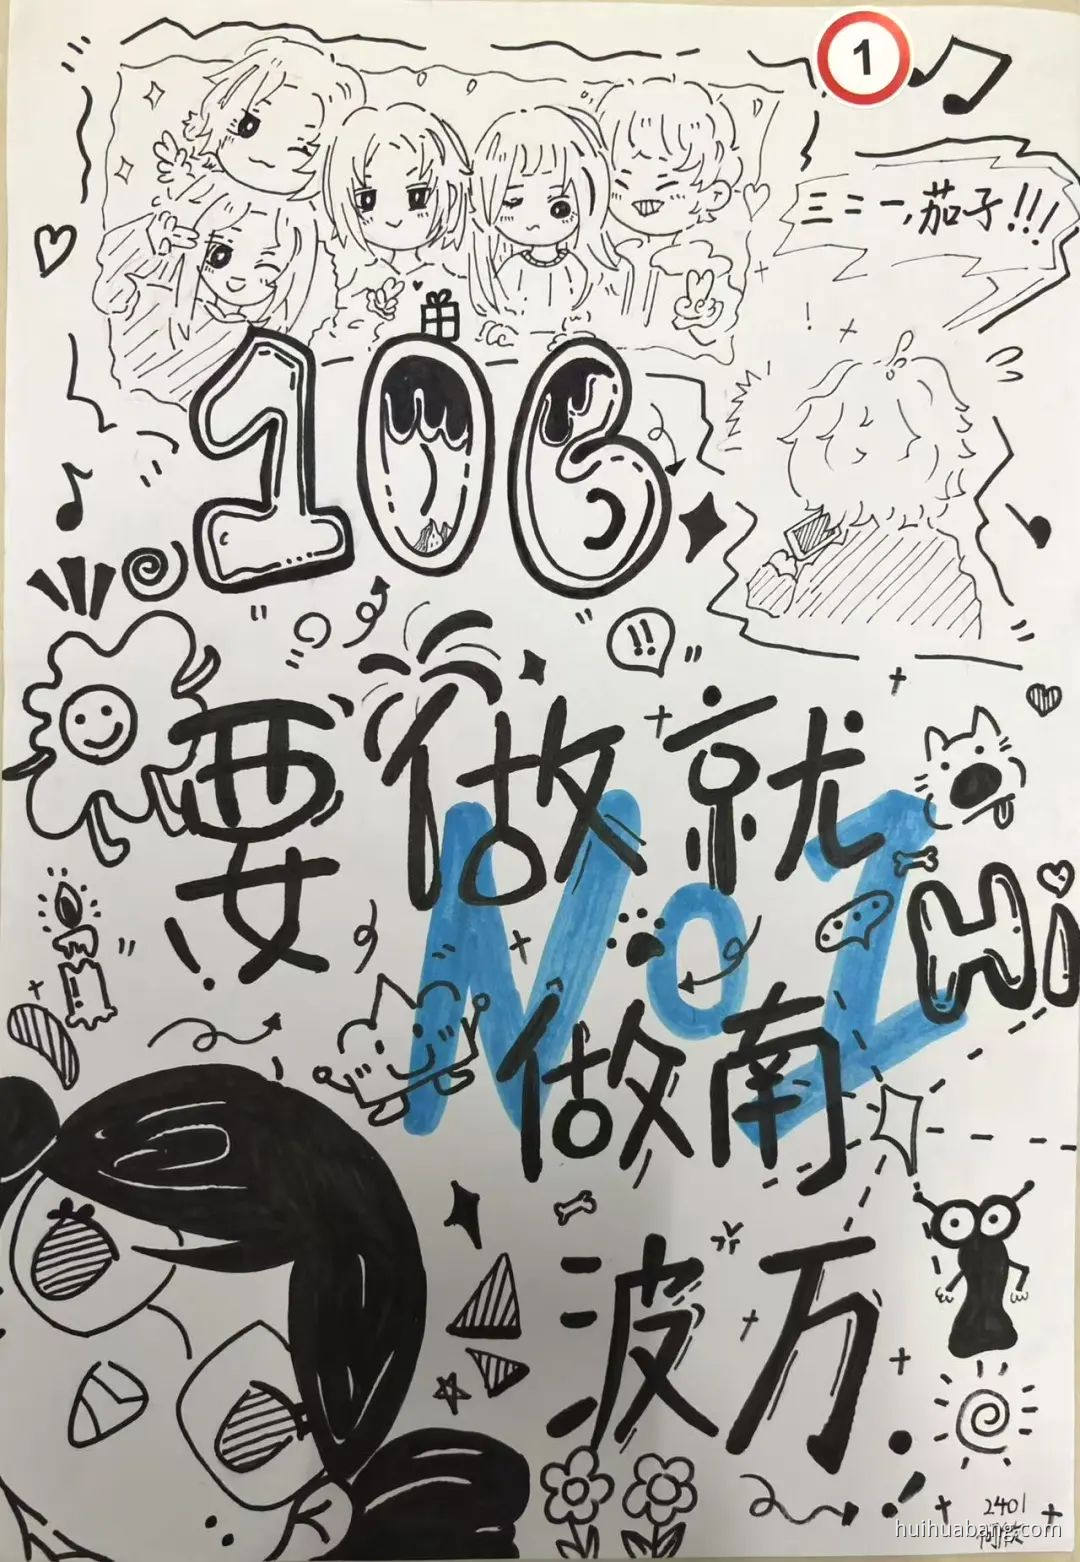 1
三二一,茄子!!!
106
!!
要做就
No1
Hi
做南
波万
2401
huihuabang.com